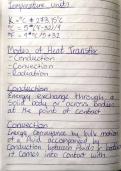 Temperature units
K = °C + 273.15°C
°C = 5*(°F-32)/9
°F = 9*°C/5+32
Modes of Heat Transfer
- Conduction
- Convection
- Radiation
Conduction
Energy exchange through a
solid body or across bodies
at the point of contact
Convection
Energy conveyance by bulk motion
of a fluid accompanied by
conduction between fluids & bodies
it comes into contact with